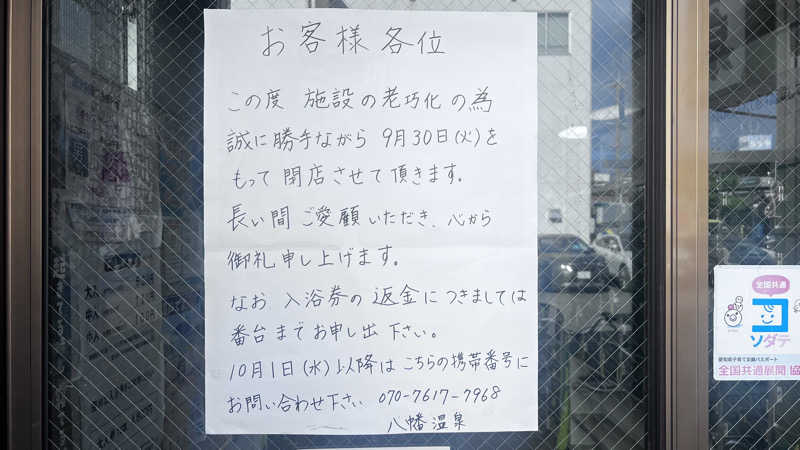 お客様各位
この度 施設の老巧化の為
誠に勝手ながら 9月30日(火)を
もって 閉店させて頂きます。
長い間 ご愛顧いただき、心から
御礼申し上げます。
なお 入浴券の返金につきましては
番台までお申し出下さい。
10月1日(水)以降はこちらの携帯番号に
お問い合わせ下さい 070-7617-7968
八幡温泉
全国共通
コ
ソダテ
愛知県子育て家庭優待パスポート
全国共通展開 協